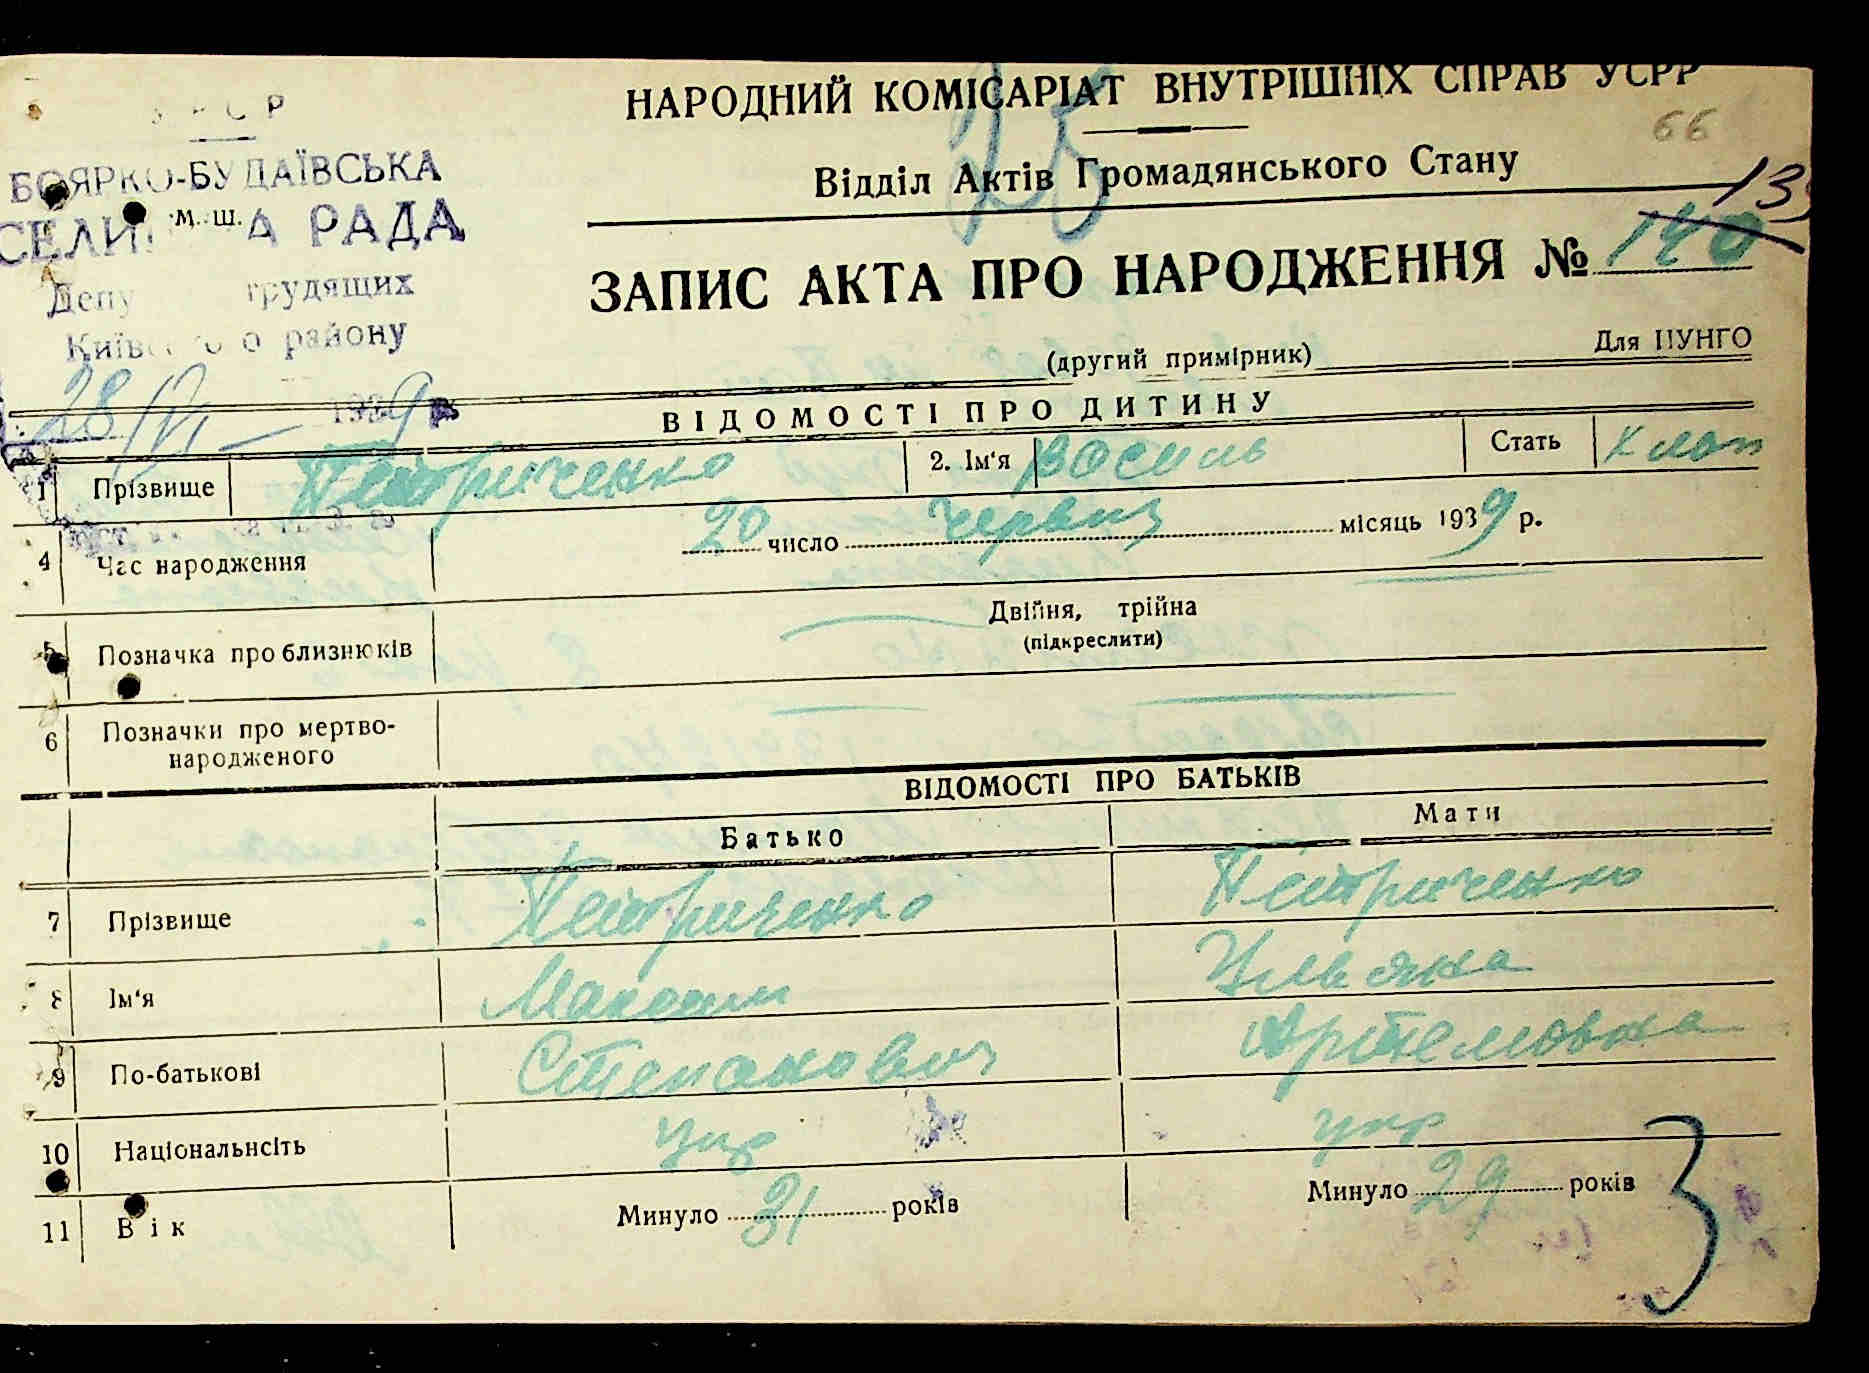 НАРОДНИЙ КОМІСАРІАТ ВНУТРІШНІХ СПРАВ УСРР
25
66
Відділ Актів Громадянського Стану
БОЯРКО-БУДАЇВСЬКА
м. ш.
РАДА
трудящих
району
28/VI 1939 р.
139
ЗАПИС АКТА ПРО НАРОДЖЕННЯ № 140
(другий примірник)
Для ЦУНГО
ВІДОМОСТІ ПРО ДИТИНУ
1 Прізвище Петриченко 2. Ім'я Василь Стать Хлоп
4 Час народження 20 число Червня місяць 1939 р.
5 Позначка про близнюків Двійня, трійна
(підкреслити)
6 Позначки про мертво-
народженого
ВІДОМОСТІ ПРО БАТЬКІВ
Батько Мати
7 Прізвище Петриченко Петриченко
8 Ім'я Максим Ульяна
9 По-батькові Степанович Артемовна
10 Національнсіть укр укр
11 Вік Минуло 31 років Минуло 29 років
3